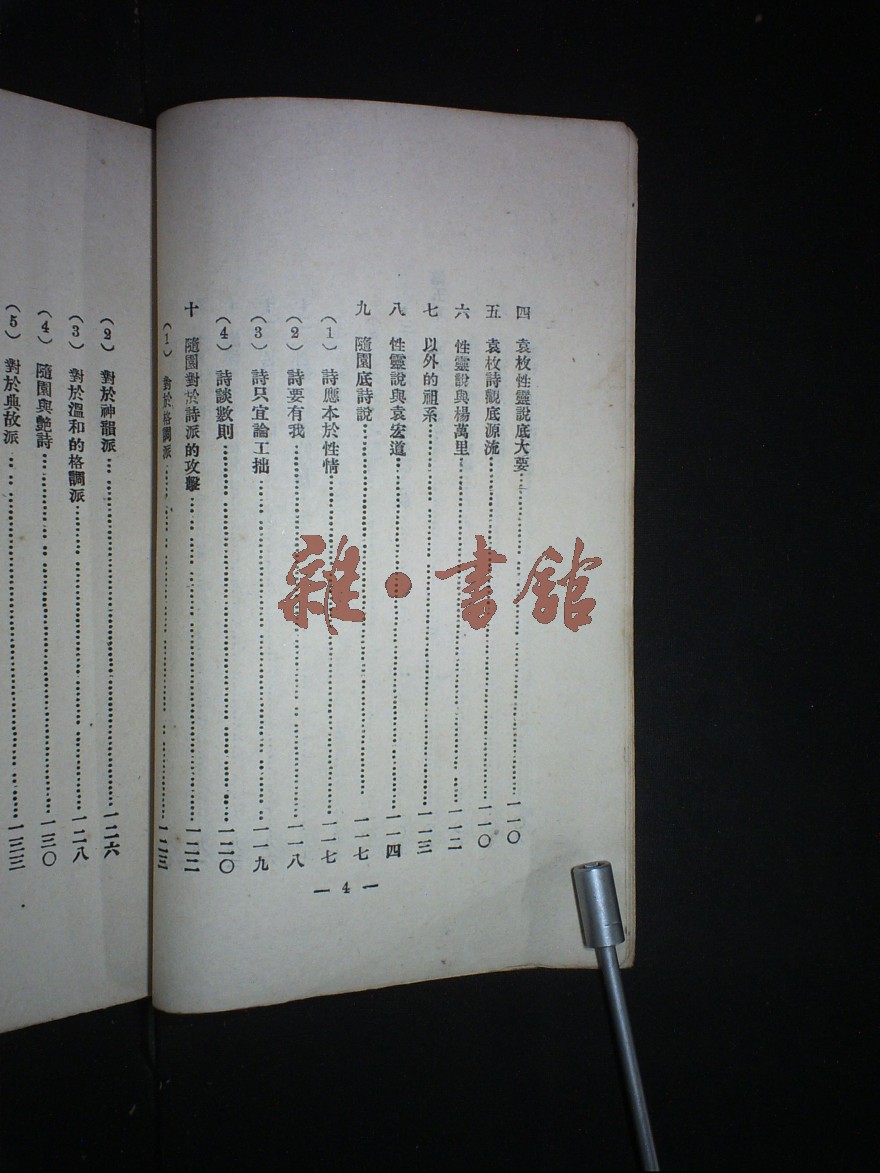 四　袁枚性靈說底大要……一一〇
五　袁枚詩觀底源流……一一〇
六　性靈說與楊萬里……一一二
七　以外的祖系……一一三
八　性靈說與袁宏道……一一四
九　隨園底詩說……一一七
（1）　詩應本於性情……一一七
（2）　詩要有我……一一八
（3）　詩只宜論工拙……一一九
（4）　詩談數則……一二〇
十　隨園對於詩派的攻擊……一二二
（1）　對於格調派……一二三
— 4 —
（2）　對於神韻派……一二六
（3）　對於溫和的格調派……一二八
（4）　隨園與艷詩……一三〇
（5）　對於典故派……一三三
雜·書館